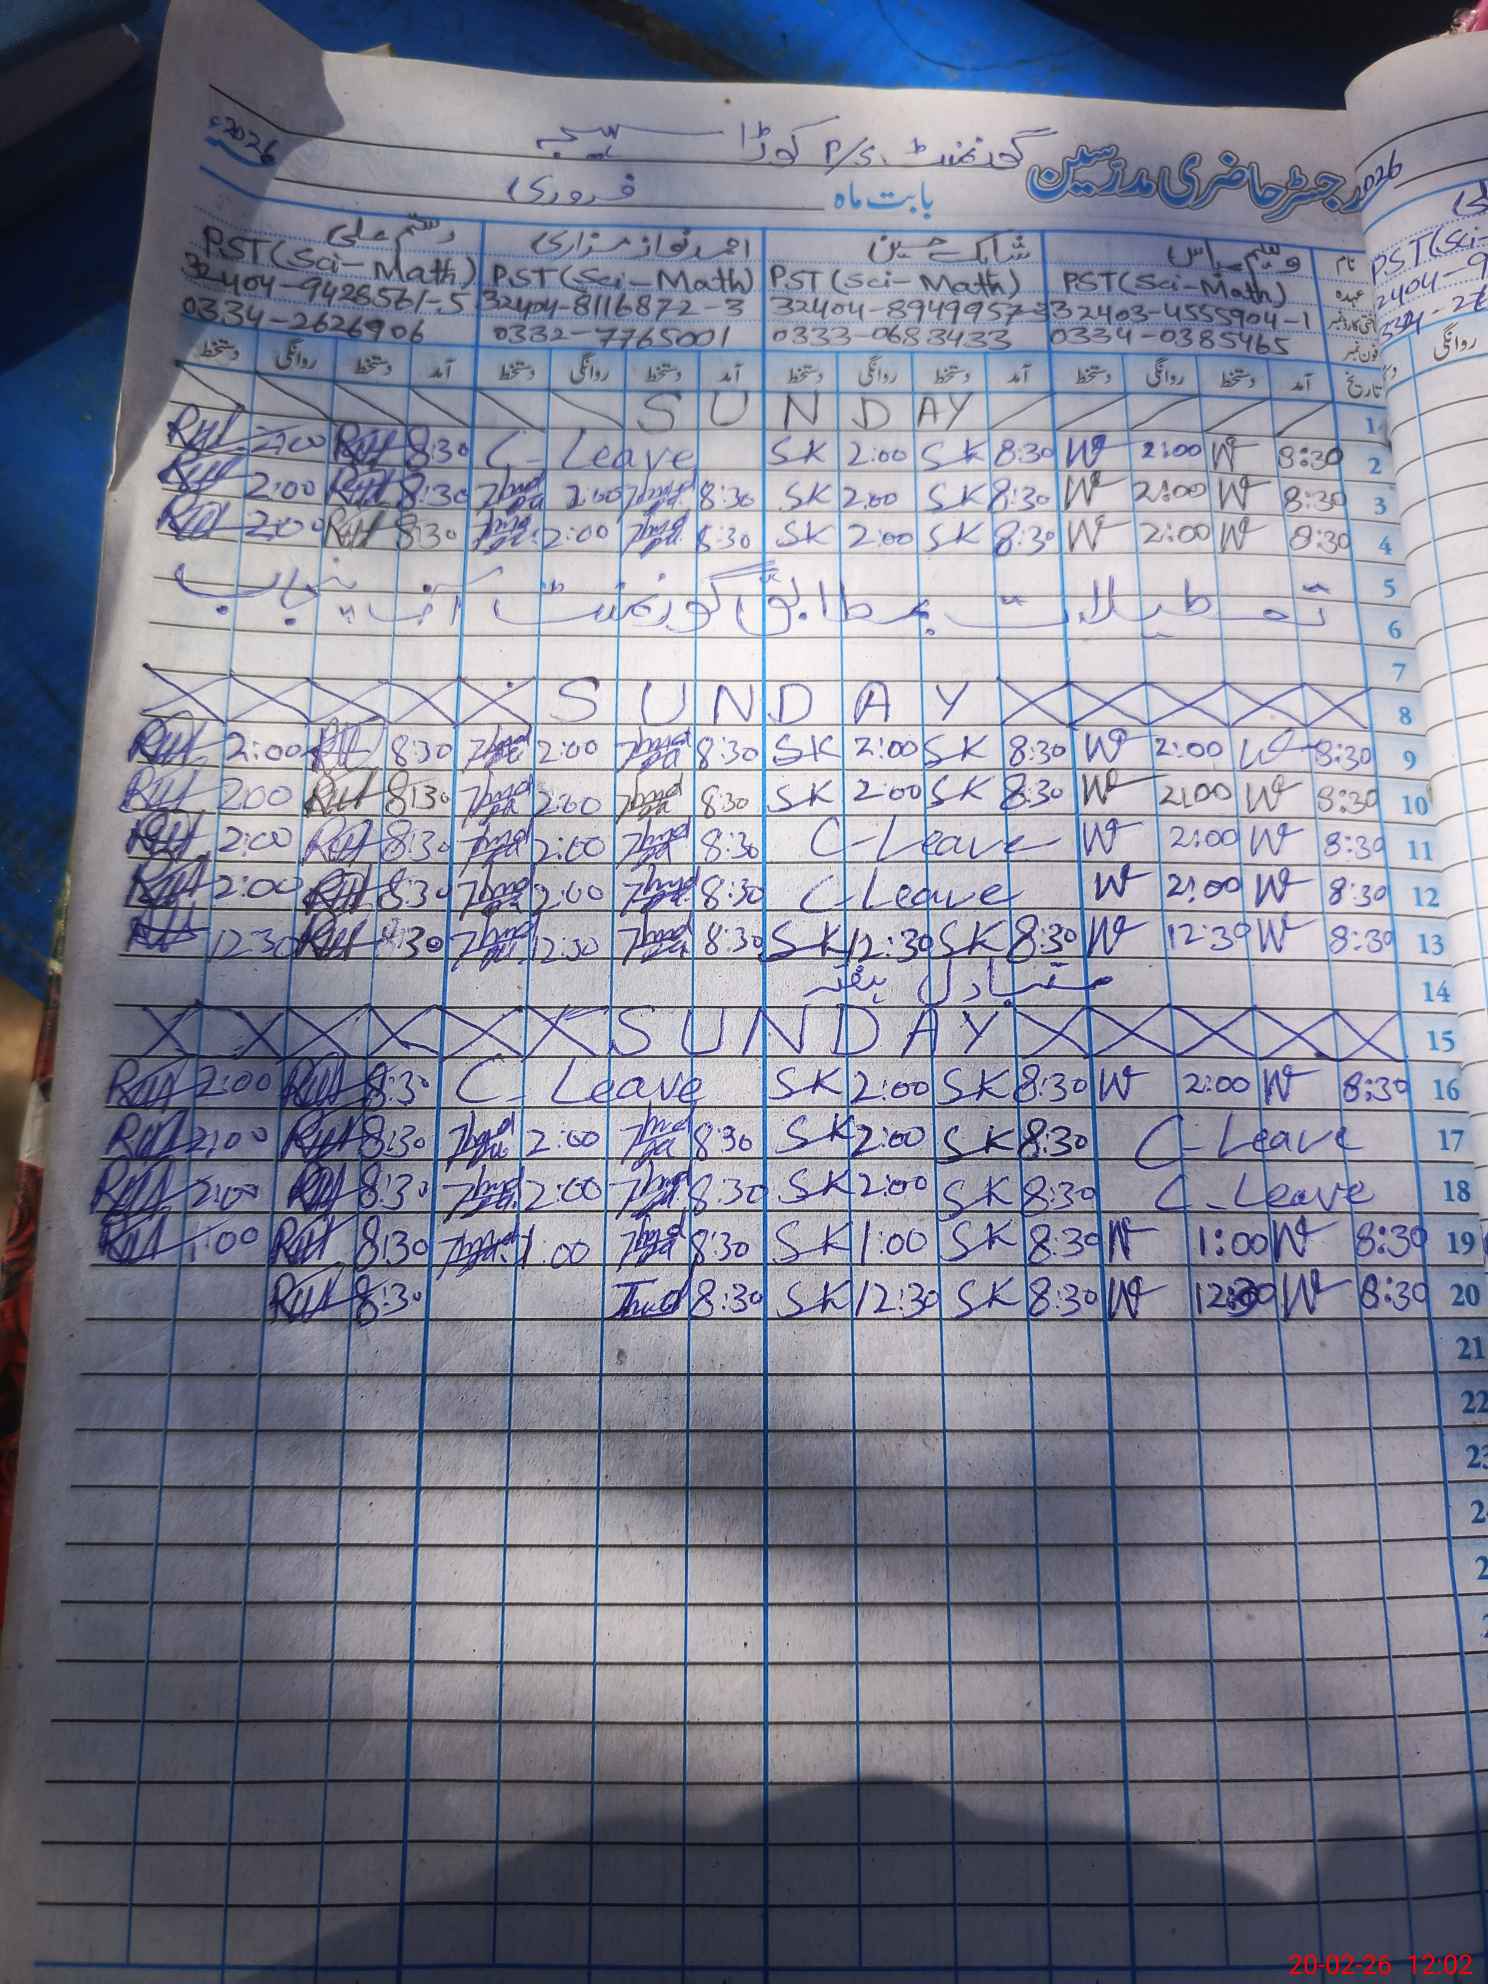 رجسٹر حاضری مدرّسین گورنمنٹ P/S کوڑا 2026ء
بابت ماہ فروری
نام وسیم عباس شابک حسین احمد نواز مزاری رستم علی
عہدہ PST(Sci-Math) PST(Sci-Math) PST(Sci-Math) PST(Sci-Math)
32403-4555904-1 32404-8949957-3 32404-8116872-3 32404-9428561-5
فون نمبر 0334-0385465 0333-0683433 0332-7765001 0334-2626906
تاریخ آمد دستخط روانگی دستخط آمد دستخط روانگی دستخط آمد دستخط روانگی دستخط آمد دستخط روانگی دستخط
1 SUNDAY
2 8:30 W 2:00 W 8:30 SK 2:00 SK C-Leave 8:30 2:00
3 8:30 W 2:00 W 8:30 SK 2:00 SK 8:30 2:00 8:30 2:00
4 8:30 W 2:00 W 8:30 SK 2:00 SK 8:30 2:00 8:30 2:00
5
6 تعطیلات بمطابق گورنمنٹ آف پنجاب
7
8 SUNDAY
9 8:30 W 2:00 W 8:30 SK 2:00 SK 8:30 2:00 8:30 2:00
10 8:30 W 2:00 W 8:30 SK 2:00 SK 8:30 2:00 8:30 2:00
11 8:30 W 2:00 W C-Leave 8:30 2:00 8:30 2:00
12 8:30 W 2:00 W C-Leave 8:30 2:00 8:30 2:00
13 8:30 W 12:30 W 8:30 SK 12:30 SK 8:30 12:30 8:30 12:30
14 متبادل ہفتہ
15 SUNDAY
16 8:30 W 2:00 W 8:30 SK 2:00 SK C-Leave 8:30 2:00
17 C-Leave 8:30 SK 2:00 SK 8:30 2:00 8:30 2:00
18 C-Leave 8:30 SK 2:00 SK 8:30 2:00 8:30 2:00
19 8:30 W 1:00 W 8:30 SK 1:00 SK 8:30 1:00 8:30 1:00
20 8:30 W 12:30 W 8:30 SK 12:30 SK 8:30 8:30
21
22
20-02-26 12:02